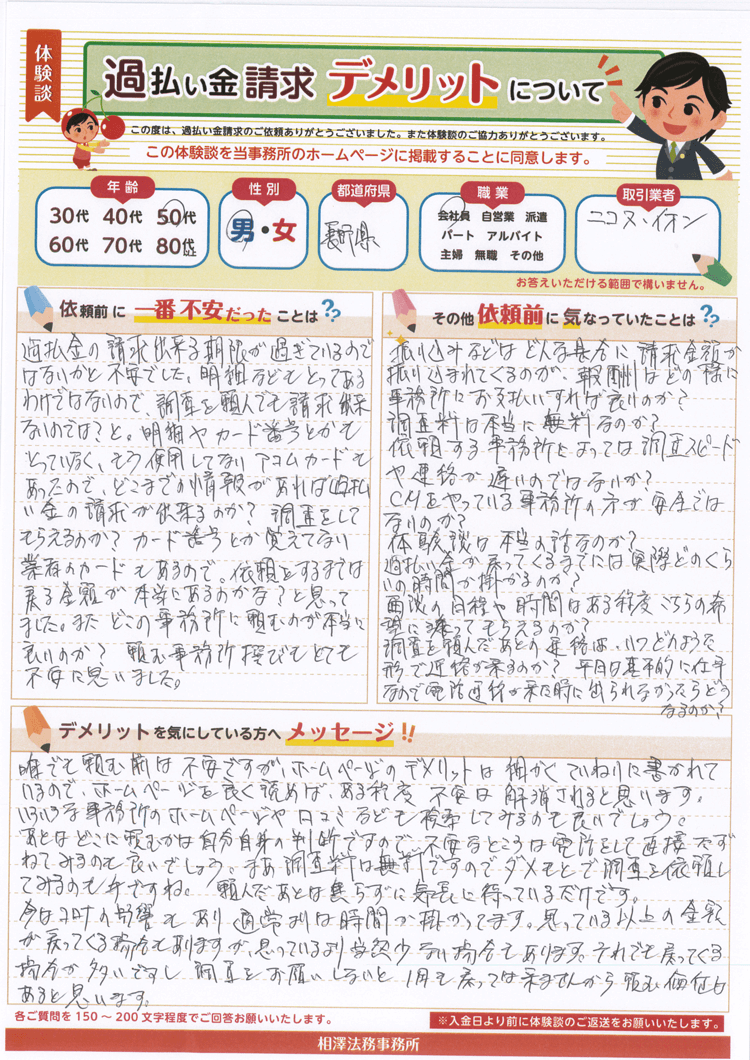 体験談
過払い金請求 デメリットについて
この度は、過払い金請求のご依頼ありがとうございました。また体験談のご協力ありがとうございます。
この体験談を当事務所のホームページに掲載することに同意します。
年齢
30代 40代 50代
60代 70代 80代以上
性別
男・女
都道府県
長野県
職業
会社員 自営業 派遣
パート アルバイト
主婦 無職 その他
取引業者
ニコス・イオン
お答えいただける範囲で構いません。
依頼前に一番不安だったことは??
過払金の請求出来る期限が過ぎているので
はないかと不安でした。明細などもとってある
わけではないので、調査を頼んでも請求出来
ないのでは?と。明細やカード番号とかも
とっていなく、もう使用してないアコムカードも
あったので、どこまでの情報があれば過払
い金の請求が出来るのか? 調査をして
もらえるのか? カード番号とか覚えてない
業者のカードもあるので。依頼をするまでは
戻る金額が本当にあるのかな?と思って
ました。また どこの事務所に頼むのが本当に
良いのか? 頼む事務所選びもとても
不安に思いました。
その他依頼前に気なっていたことは??
振り込みなどはどんな具合に請求金額が
振り込まれてくるのか、報酬はどの様に
事務所にお支払いすれば良いのか?
調査料は本当に無料なのか?
依頼する事務所によっては調査スピード
や連絡が遅いのではないか?
CMをやっている事務所の方が安全では
ないのか?
体験談は本当の話なのか?
過払い金が戻ってくるまでには実際どのくら
いの時間が掛かるのか?
面談の日程や時間はある程度こちらの希
望に添ってもらえるのか?
調査を頼んだあとの連絡は、いつどのような
形で連絡が来るのか? 平日は基本的に仕事
なので電話連絡が来た時に出られなかったらどう
なるのか?
デメリットを気にしている方へメッセージ!!
誰でも頼む前は不安ですが、ホームページのデメリットは細かくていねいに書かれて
いるので、ホームページを良く読めば、ある程度不安は解消されると思います。
いろいろな事務所のホームページや口コミなども検索してみるのも良いでしょう。
あとはどこに頼むかは自分自身の判断ですので、不安なところは電話をして直接たず
ねてみるのも良いでしょう。まあ調査料は無料ですのでダメもとで調査を依頼し
てみるのも手ですね。 頼んだあとは焦らずに気長に待っているだけです。
今はコロナの影響もあり通常よりは時間が掛かってます。思っている以上の金額
が戻ってくる場合もありますが、思っているより金額少ない場合もあります。それでも戻ってくる
場合が多いですし、調査をお願いしないと1円も戻っては来ませんから頼む価値は
あると思います。
各ご質問を150～200文字程度でご回答お願いいたします。
※入金日より前に体験談のご返送をお願いいたします。
相澤法務事務所